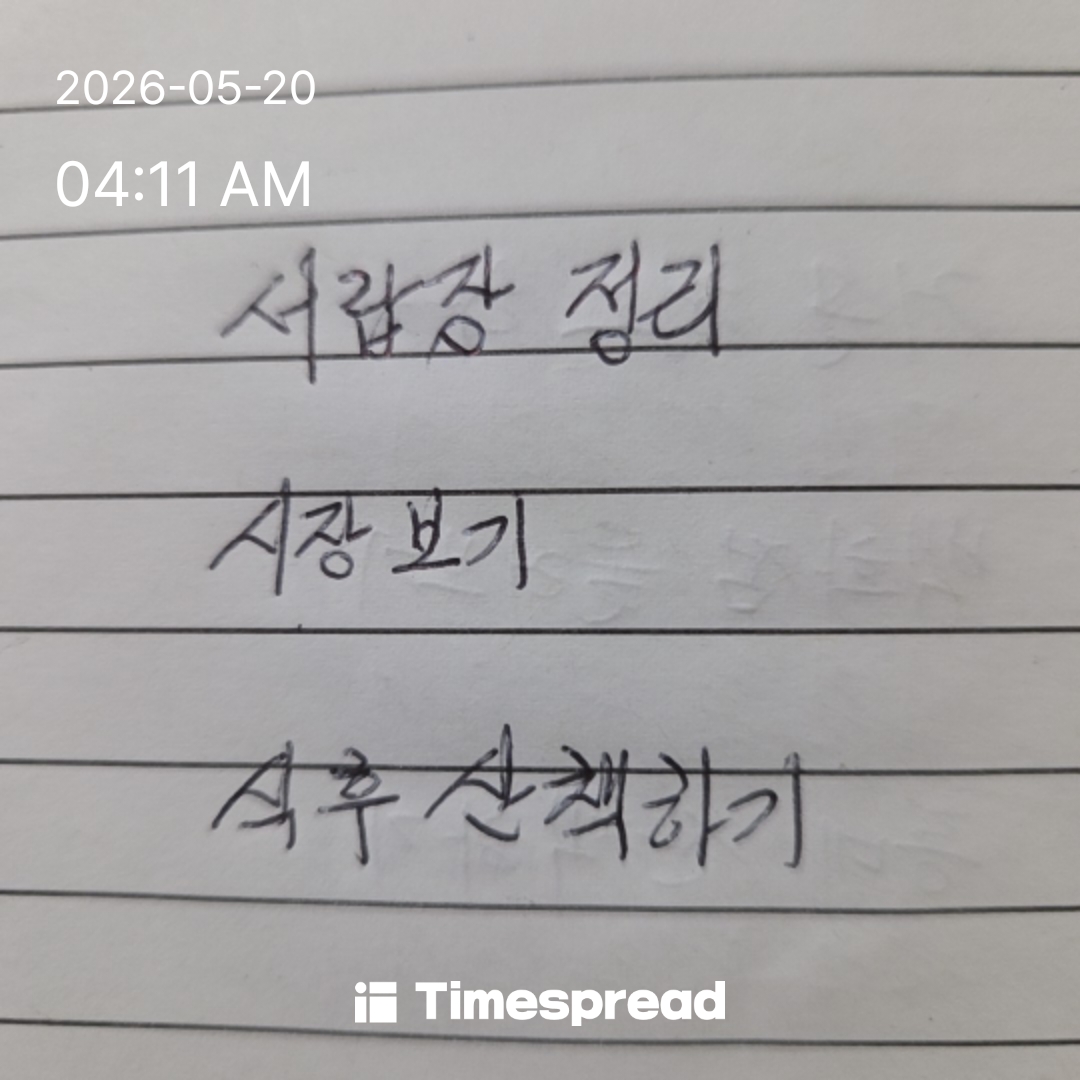 2026-05-20
04:11 AM
서랍장 정리
시장 보기
식후 산책하기
Timespread